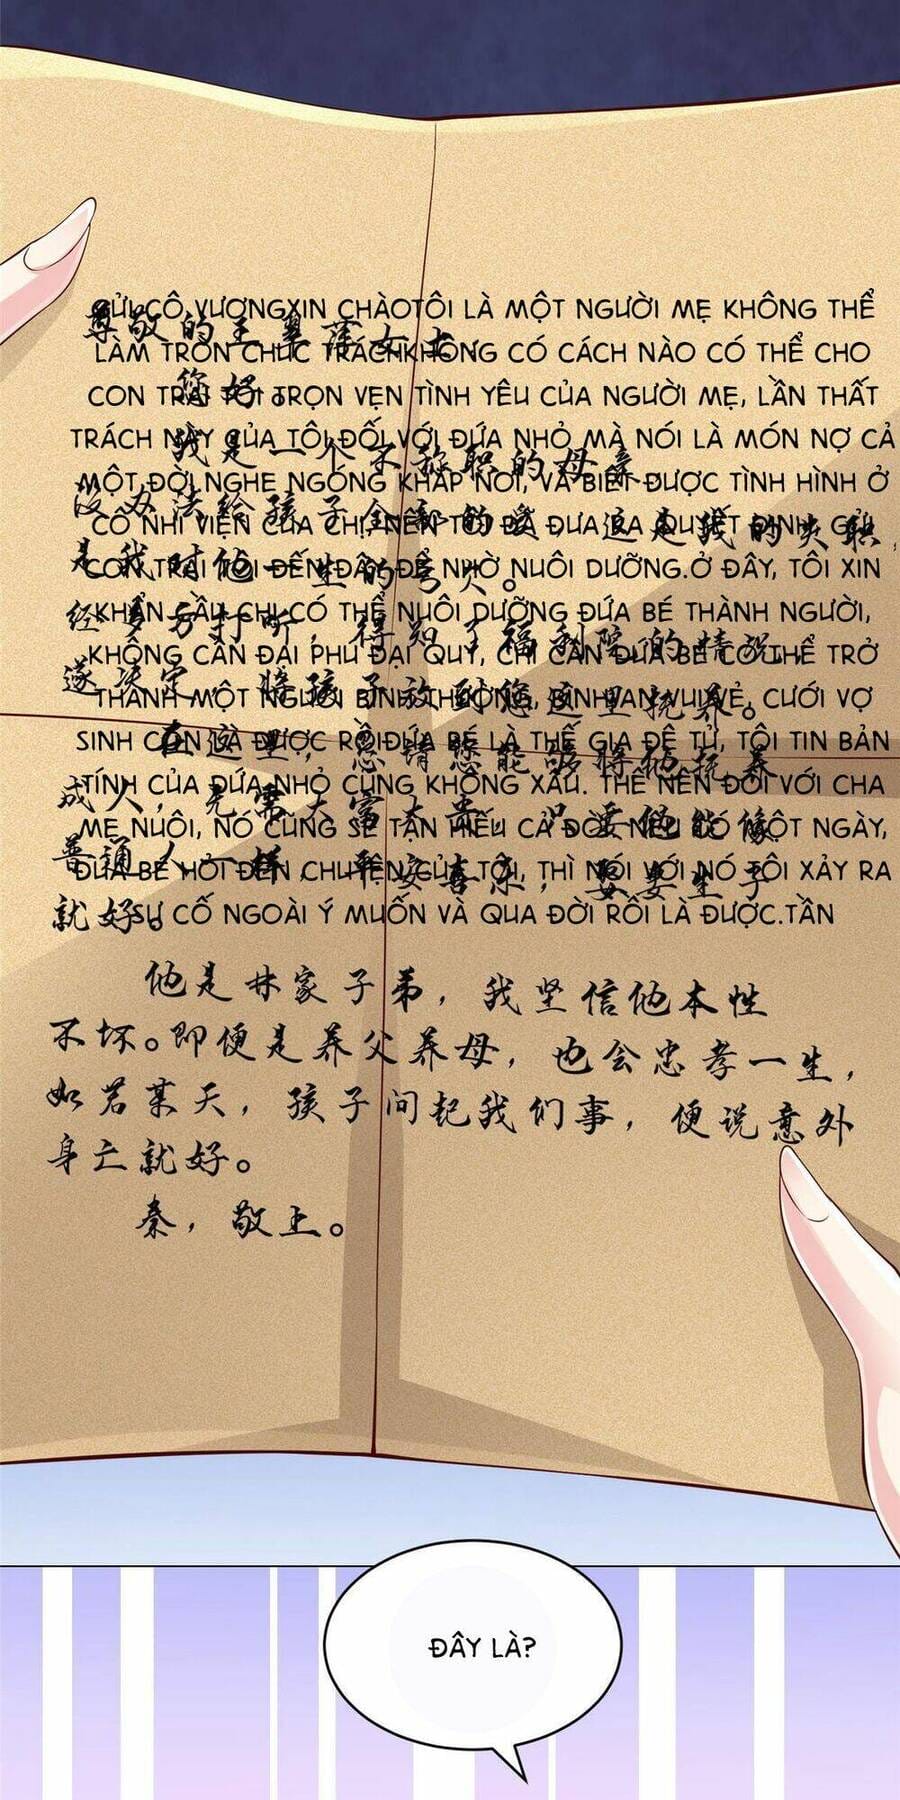 GỬI CÔ VƯƠNGXIN CHÀOTÔI LÀ MỘT NGƯỜI MẸ KHÔNG THỂ
LÀM TRÒN CHỨC TRÁCHKHÔNG CÓ CÁCH NÀO CÓ THỂ CHO
CON TRAI TÔI TRỌN VẸN TÌNH YÊU CỦA NGƯỜI MẸ, LẦN THẤT
TRÁCH NÀY CỦA TÔI ĐỐI VỚI ĐỨA NHỎ MÀ NÓI LÀ MÓN NỢ CẢ
MỘT ĐỜI.NGHE NGÓNG KHẮP NƠI, VÀ BIẾT ĐƯỢC TÌNH HÌNH Ở
CÔ NHI VIỆN CỦA CHỊ, NÊN TÔI ĐÃ ĐƯA RA QUYẾT ĐỊNH, GỬI
CON TRAI TÔI ĐẾN ĐÂY ĐỂ NHỜ NUÔI DƯỠNG.Ở ĐÂY, TÔI XIN
KHẨN CẦU CHỊ CÓ THỂ NUÔI DƯỠNG ĐỨA BÉ THÀNH NGƯỜI,
KHÔNG CẦN ĐẠI PHÚ ĐẠI QUÝ, CHỈ CẦN ĐỨA BÉ CÓ THỂ TRỞ
THÀNH MỘT NGƯỜI BÌNH THƯỜNG, BÌNH AN VUI VẺ, CƯỚI VỢ
SINH CON LÀ ĐƯỢC RỒIĐỨA BÉ LÀ THẾ GIA ĐỆ TỬ, TÔI TIN BẢN
TÍNH CỦA ĐỨA NHỎ CŨNG KHÔNG XẤU. THẾ NÊN ĐỐI VỚI CHA
MẸ NUÔI, NÓ CŨNG SẼ TẬN HIẾU CẢ ĐỜI. NẾU CÓ MỘT NGÀY,
ĐỨA BÉ HỎI ĐẾN CHUYỆN CỦA TÔI, THÌ NÓI VỚI NÓ TÔI XẢY RA
SỰ CỐ NGOÀI Ý MUỐN VÀ QUA ĐỜI RỒI LÀ ĐƯỢC.TẦN
您好。
我是一个不称职的母亲
没办法给孩子全部的爱，这是我的失职，
是我对他一生的亏欠。
经多方打听，得知了福利院的情况，
遂决定，将孩子放到您这里抚养。
在这里，恳请您能够将他抚养
成人，无需大富大贵，只要他能像
普通人一样，平安喜乐，娶妻生子
就好。
他是林家子弟，我坚信他本性
不坏。即便是养父养母，也会忠孝一生，
如若某天，孩子问起我们事，便说意外
身亡就好。
秦，敬上。
ĐÂY LÀ?